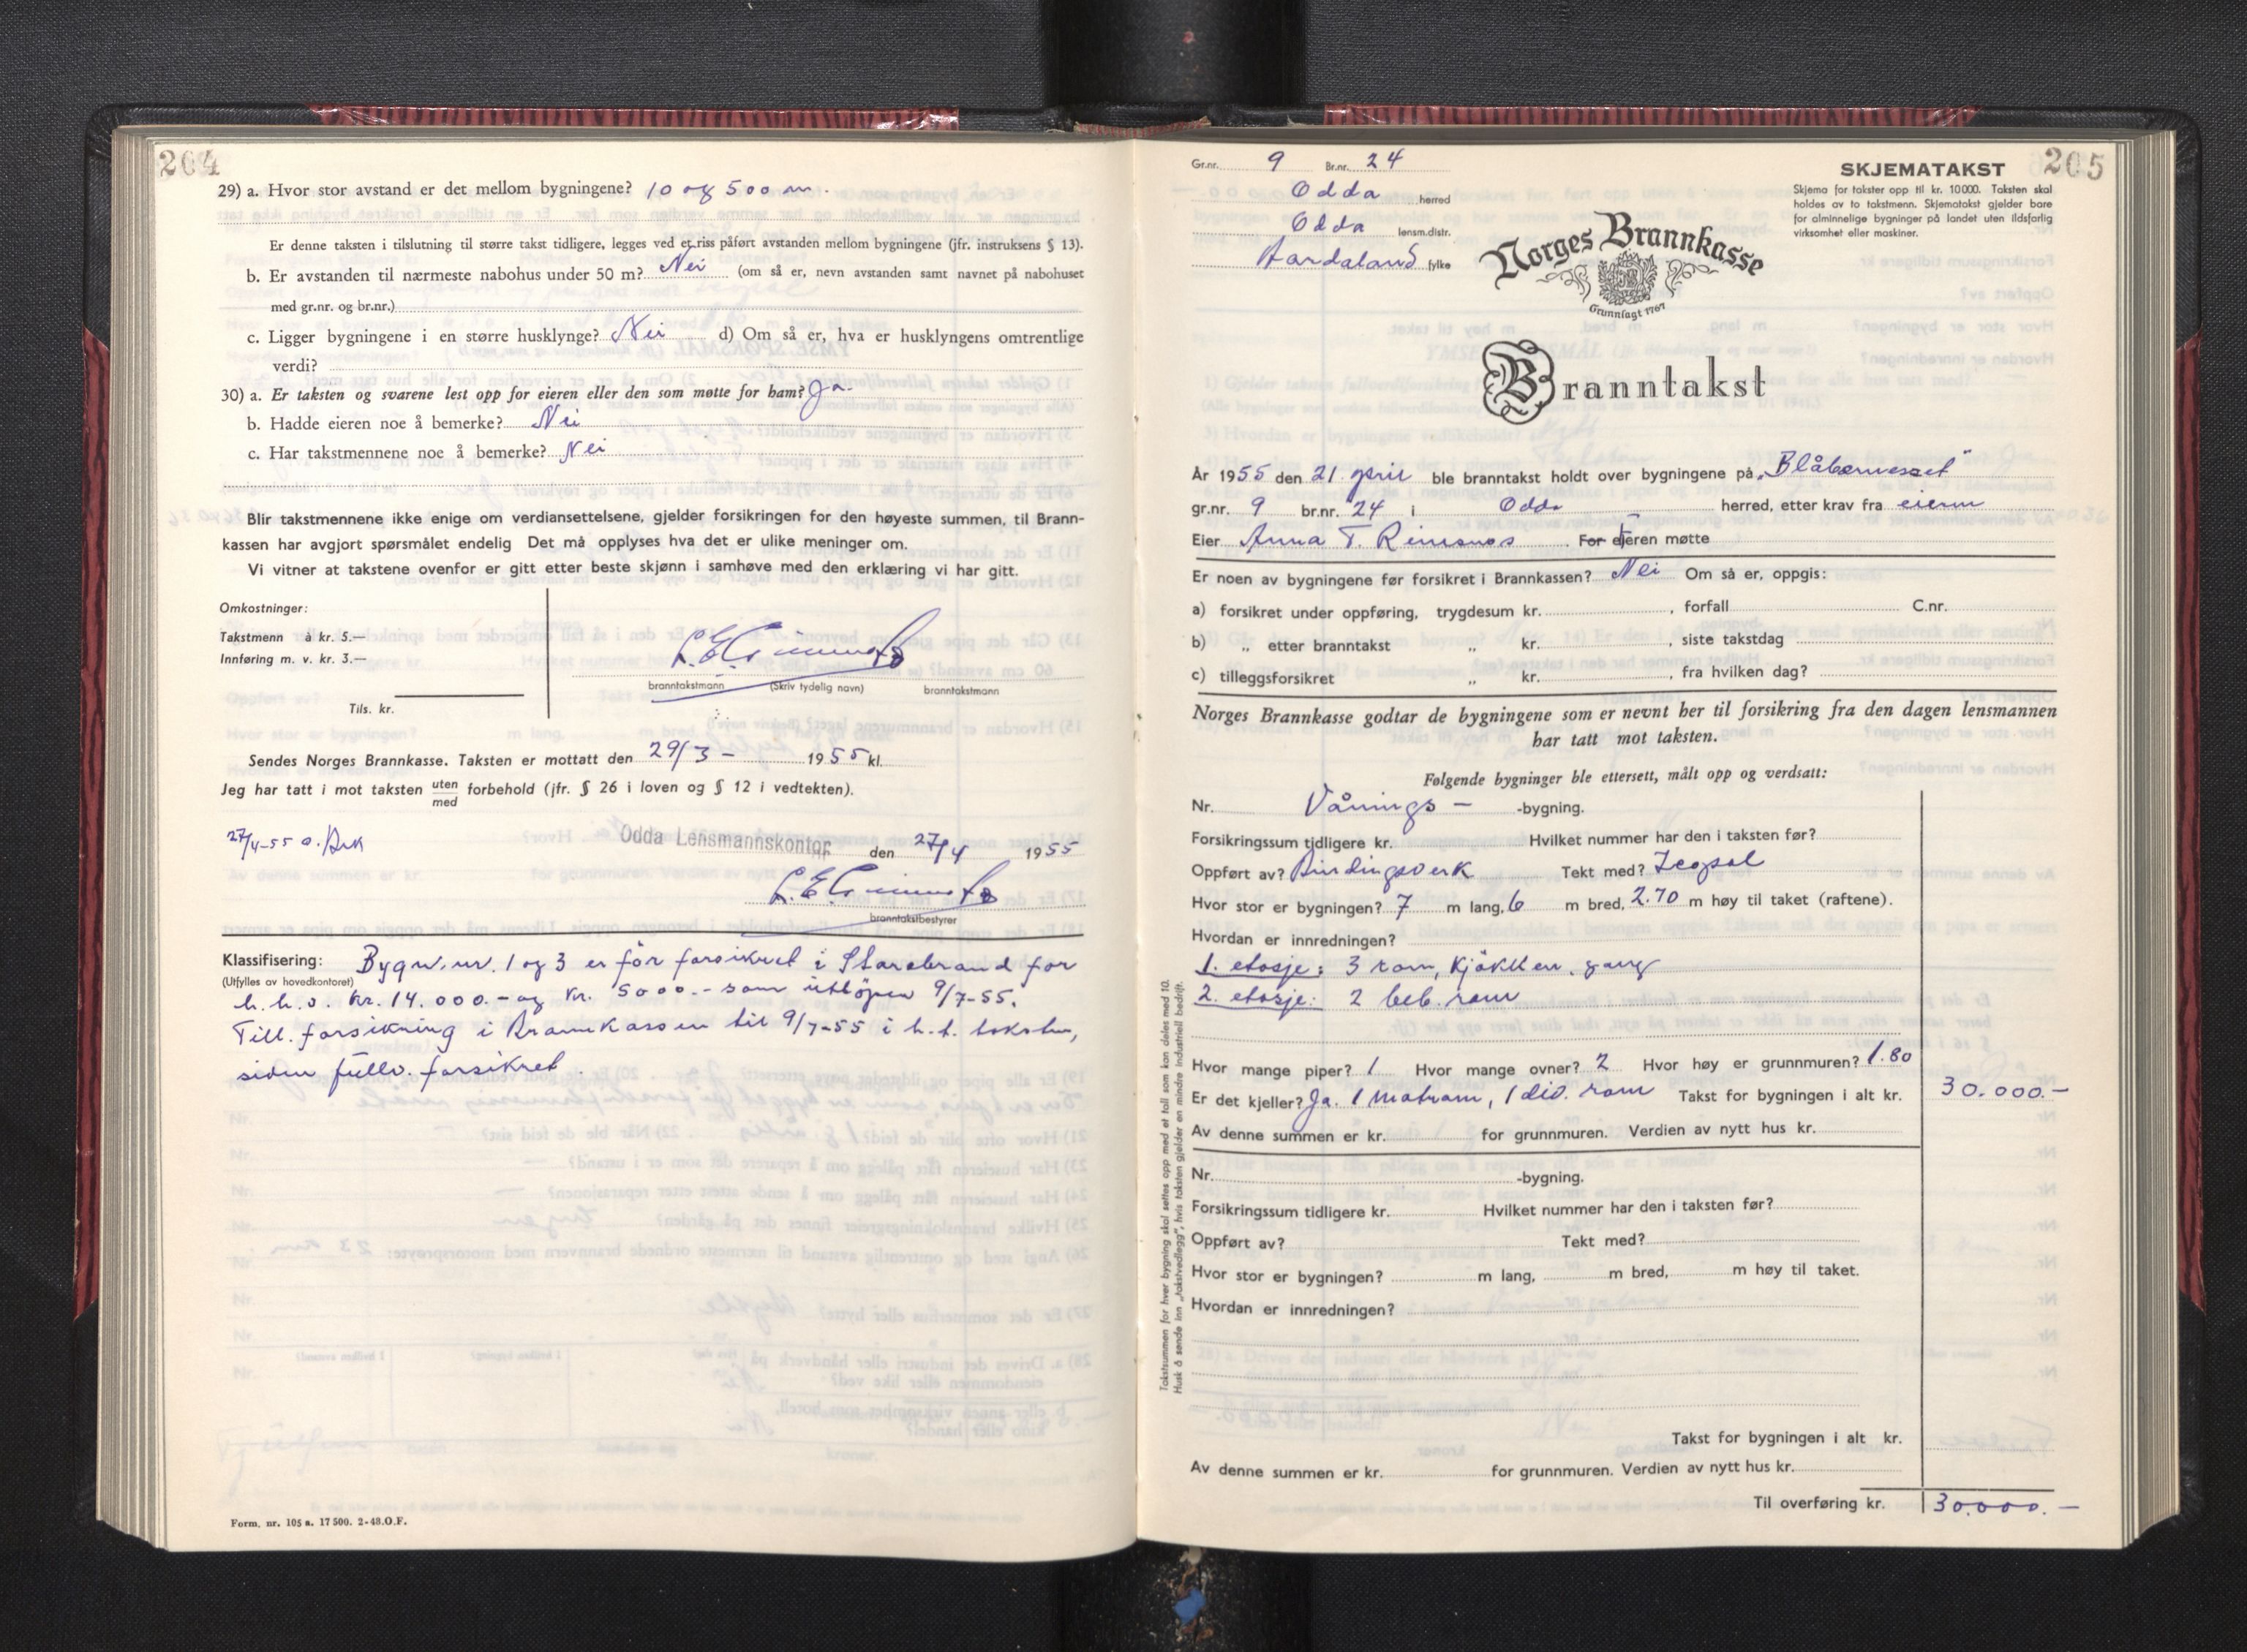 204
29) a. Hvor stor avstand er det mellom bygningene? 10 og 500 m.
Er denne taksten i tilslutning til større takst tidligere, legges ved et riss påført avstanden mellom bygningene (jfr. instruksens § 13).
b. Er avstanden til nærmeste nabohus under 50 m? Nei (om så er, nevn avstanden samt navnet på nabohuset
med gr.nr. og br.nr.)
c. Ligger bygningene i en større husklynge? Nei d) Om så er, hva er husklyngens omtrentlige
verdi?
30) a. Er taksten og svarene lest opp for eieren eller den som møtte for ham? Ja.
b. Hadde eieren noe å bemerke? Nei
c. Har takstmennene noe å bemerke? Nei
Blir takstmennene ikke enige om verdiansettelsene, gjelder forsikringen for den høyeste summen, til Brann-
kassen har avgjort spørsmålet endelig Det må opplyses hva det er ulike meninger om.
Vi vitner at takstene ovenfor er gitt etter beste skjønn i samhøve med den erklæring vi har gitt.
Omkostninger:
Takstmenn à kr. 5.—
Innføring m. v. kr. 3.—
Tils. kr.
branntakstmann (Skriv tydelig navn) branntakstmann
Sendes Norges Brannkasse. Taksten er mottatt den 29/3 - 1955 kl.
Jeg har tatt i mot taksten uten forbehold (jfr. § 26 i loven og § 12 i vedtekten).
med
27/4-55
Odda Lensmannskontor den 27/4 1955
branntakstbestyrer
Klassifisering: Bygn. nr. 1 og 3 er før forsikret i Storebrand for
(Utfylles av hovedkontoret) h.h.v. kr. 14.000.- og kr. 5000.- som utløper 9/7-55.
Till. forsikring i Brannkassen til 9/7-55 i h.t. taksten,
siden fullv. forsikret.
Form. nr. 105 a. 17 500. 2-48.O.F.
Gr.nr. 9 Br.nr. 24
Odda herred
Odda lensm.distr.
Hordaland fylke
SKJEMATAKST 205
Skjema for takster opp til kr. 10 000. Taksten skal
holdes av to takstmenn. Skjematakst gjelder bare
for alminnelige bygninger på landet uten ildsfarlig
virksomhet eller maskiner.
Norges Brannkasse
Grunnlagt 1767
Branntakst
År 1955 den 21. april ble branntakst holdt over bygningene på „Blåbærnesset"
gr.nr. 9 br.nr. 24 i Odda herred, etter krav fra eieren
Eier Anna T. Reinsnos For eieren møtte
Er noen av bygningene før forsikret i Brannkassen? Nei Om så er, oppgis:
a) forsikret under oppføring, trygdesum kr. , forfall C.nr.
b) „ etter branntakst „ kr. , siste takstdag
c) tilleggsforsikret „ kr. , fra hvilken dag?
Norges Brannkasse godtar de bygningene som er nevnt her til forsikring fra den dagen lensmannen
har tatt mot taksten.
Følgende bygningene ble ettersett, målt opp og verdsatt:
Nr. Vånings- -bygning.
Forsikringssum tidligere kr. Hvilket nummer har den i taksten før?
Oppført av? Bindingsverk Tekt med? Zeopal
Hvor stor er bygningen? 7 m lang, 6 m bred, 2.70 m høy til taket (raftene).
Hvordan er innredningen?
1. etasje: 3 rom, kjøkken, gang
2. etasje: 2 beb. rom
Hvor mange piper? 1 Hvor mange ovner? 2 Hvor høy er grunnmuren? 1.80
Er det kjeller? Ja. 1 matrom, 1 div. rom Takst for bygningen i alt kr. 30.000.-
Av denne summen er kr. for grunnmuren. Verdien av nytt hus kr.
Nr. -bygning.
Forsikringssum tidligere kr. Hvilket nummer har den i taksten før?
Oppført av? Tekt med?
Hvor stor er bygningen? m lang, m bred, m høy til taket.
Hvordan er innredningen?
Takst for bygningen i alt kr.
Av denne summen er kr. for grunnmuren. Verdien av nytt hus kr.
Til overføring kr. 30.000.-
Takstsummen for hver bygning skal settes opp med et tall som kan deles med 10.
Husk å sende inn „Takstvedlegg", hvis taksten gjelder en mindre industriell bedrift.